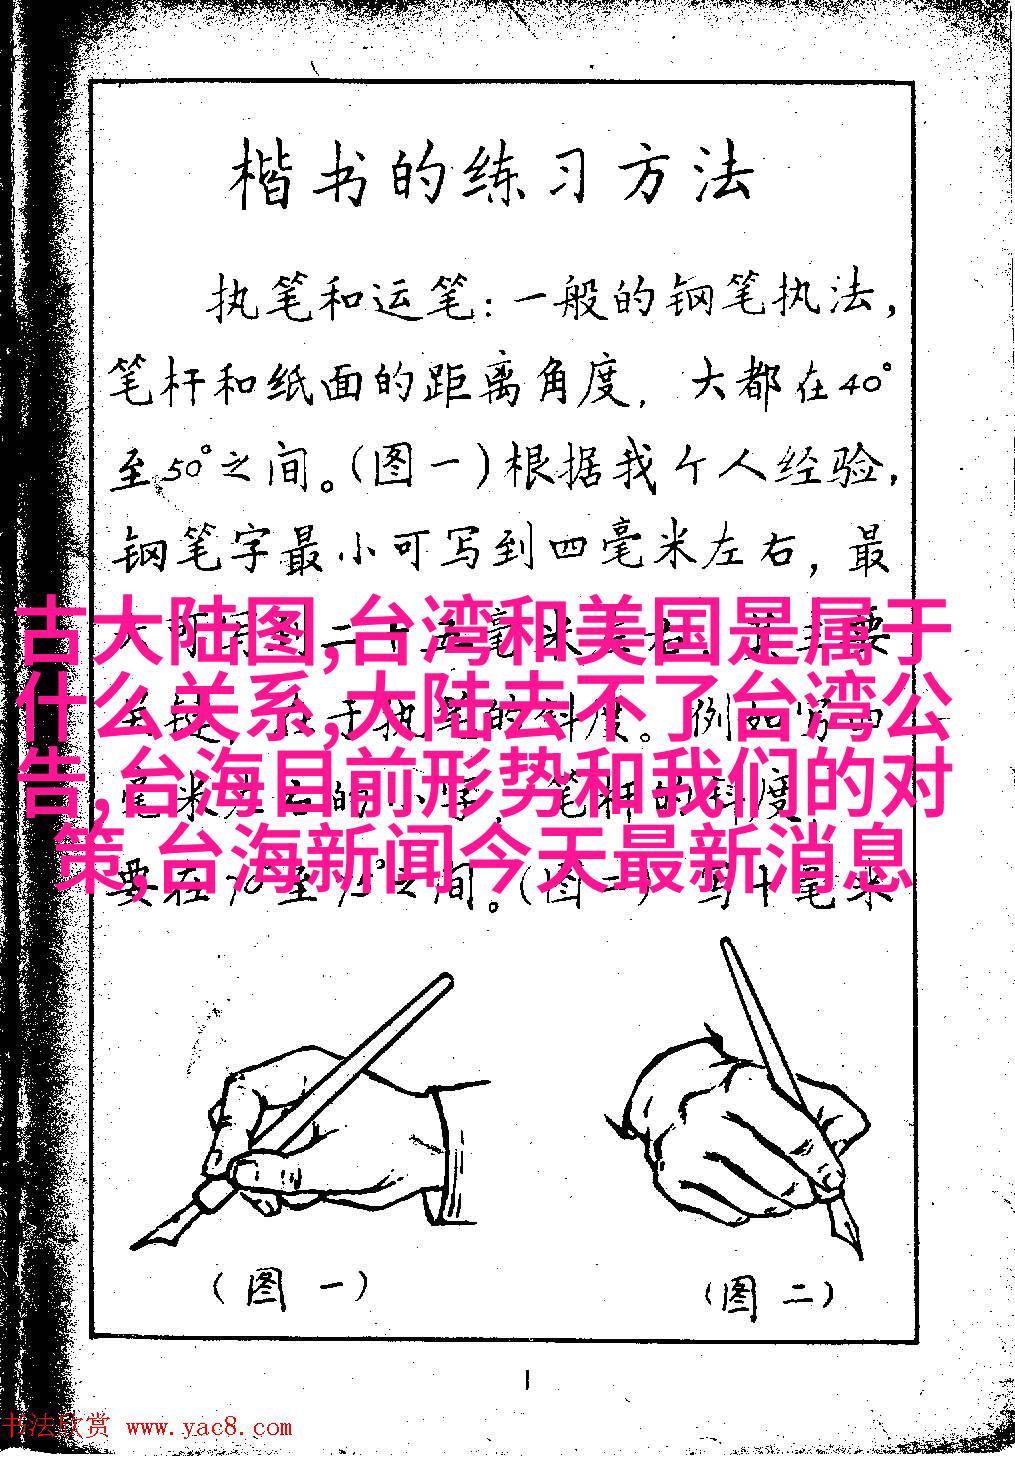 楷书的练习方法
执笔和运笔：一般的钢笔执法，
笔杆和纸面的距离角度，大都在40°
至50°之间。(图一)根据我个人经验，
钢笔字最小可写到四毫米左右，最
古大陆图,台湾和美国是属于
什么关系,大陆去不了台湾公
告,台海目前形势和我们的对
策,台海新闻今天最新消息
要在 至 之间。(图二)写十毫米
(图一)
(图二)
1
书法欣赏 www.yac8.com